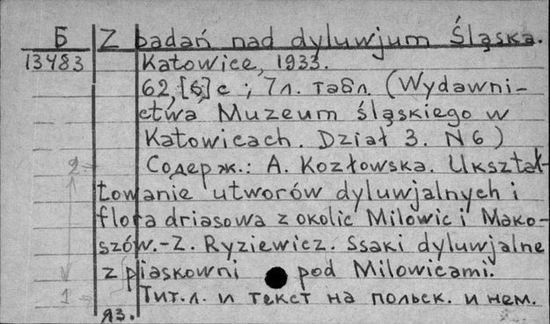 Б Z badań nad dyluwjum Śląska.
13483 Katowice, 1933.
62,[6]с ; 7л. табл. (Wydawni-
ctwa Muzeum śląskiego w
Katowicach. Dział 3. N6)
2 Содерж.: A. Kozłowska. Ukształ-
towanie utworów dyluwjalnych i
flora driasowa z okolic Milowic i Mako-
szów.-Z. Ryziewicz. Ssaki dyluwjalne
z piaskowni pod Milowicami.
1 Тит.л. и текст на польск. и нем.
яз.